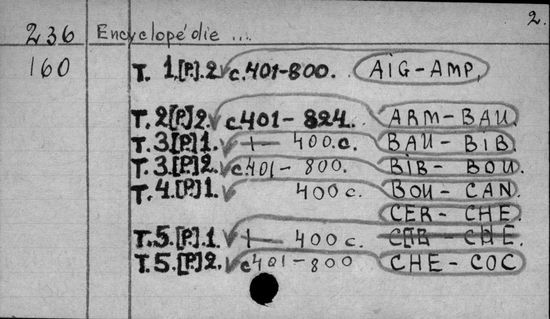 2.
236 Encyclopédie ...
160 T. 1.[P.]2 c.401-800. AIG-AMP.
T.2[P.]2. c401-824. ARM-BAU.
T.3[P.]1. 1-400.c. BAU-BIB.
T.3.[P.]2. c401-800. BIB-BOU
T.4.[P.]1. 400c. BOU-CAN.
CER-CHE
T.5.[P.].1. 1-400c.
T.5.[P.]2. c401-800 CHE-COC